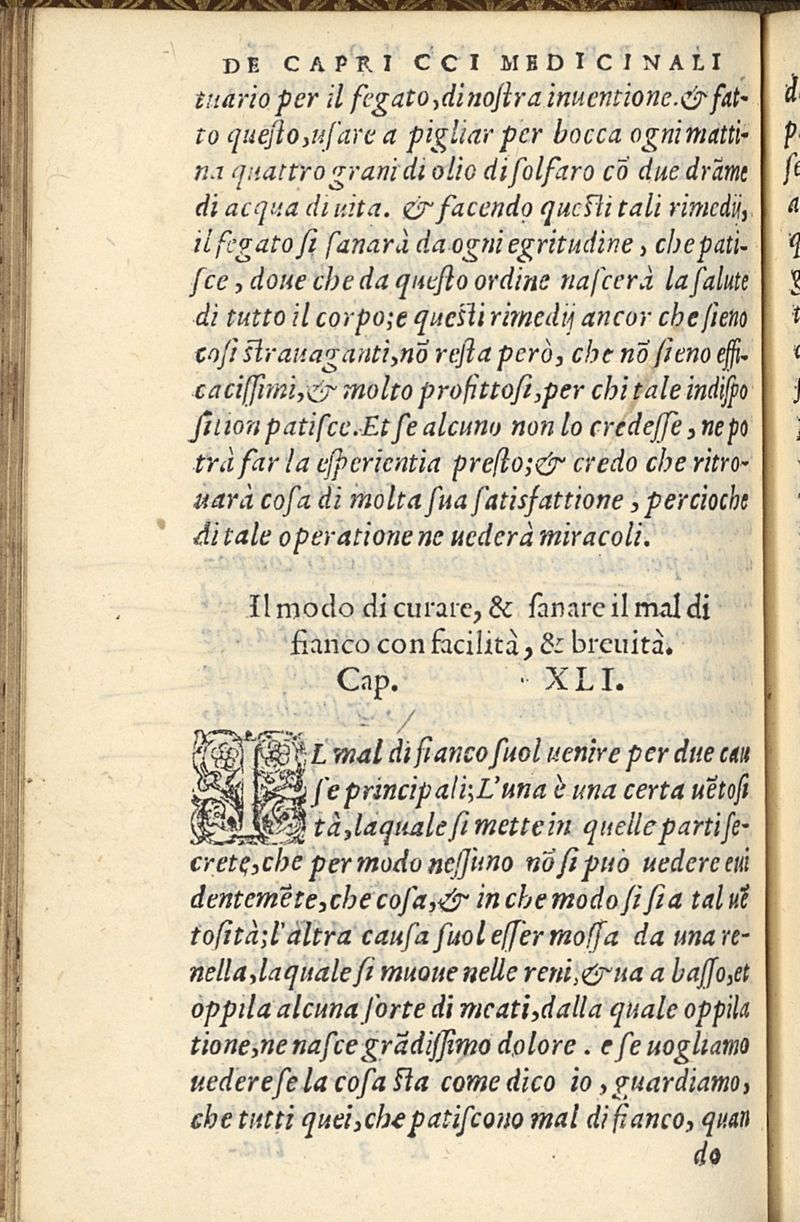 DE CAPRICCI MEDICINALI
tuario per il fegato, di nostra inuentione. & fat-
to questo, usare a pigliar per bocca ogni matti-
na quattro grani di olio di solfaro cō due drāme
di acqua di uita. & facendo questi tali rimedij,
il fegato si sanarà da ogni egritudine, che pati-
sce, doue che da questo ordine nascerà la salute
di tutto il corpo; e questi rimedij ancor che sieno
cosi strauaganti, nō resta però, che nō sieno effi-
cacissimi, & molto profittosi, per chi tale indispo
sition patisce. Et se alcuno non lo credesse, ne po
trà far la esperientia presto; & credo che ritro-
uarà cosa di molta sua satisfattione, percioche
di tale operatione ne uederà miracoli.
Il modo di curare, & sanare il mal di
fianco con facilità, & breuità.
Cap. XLI.
IL mal di fianco suol uenire per due cau
se principali; L'una è una certa uētosi
tà, laquale si mette in quelle parti se-
crete, che per modo nessuno nō si può uedere eui
dentemēte, che cosa, & in che modo si sia tal uē
tosità; l'altra causa suol esser mossa da una re-
nella, laquale si muoue nelle reni, & ua a basso, et
oppila alcuna sorte di meati, dalla quale oppila
tione, ne nasce grādissimo dolore. e se uogliamo
uedere se la cosa sta come dico io, guardiamo,
che tutti quei, che patiscono mal di fianco, quan
do